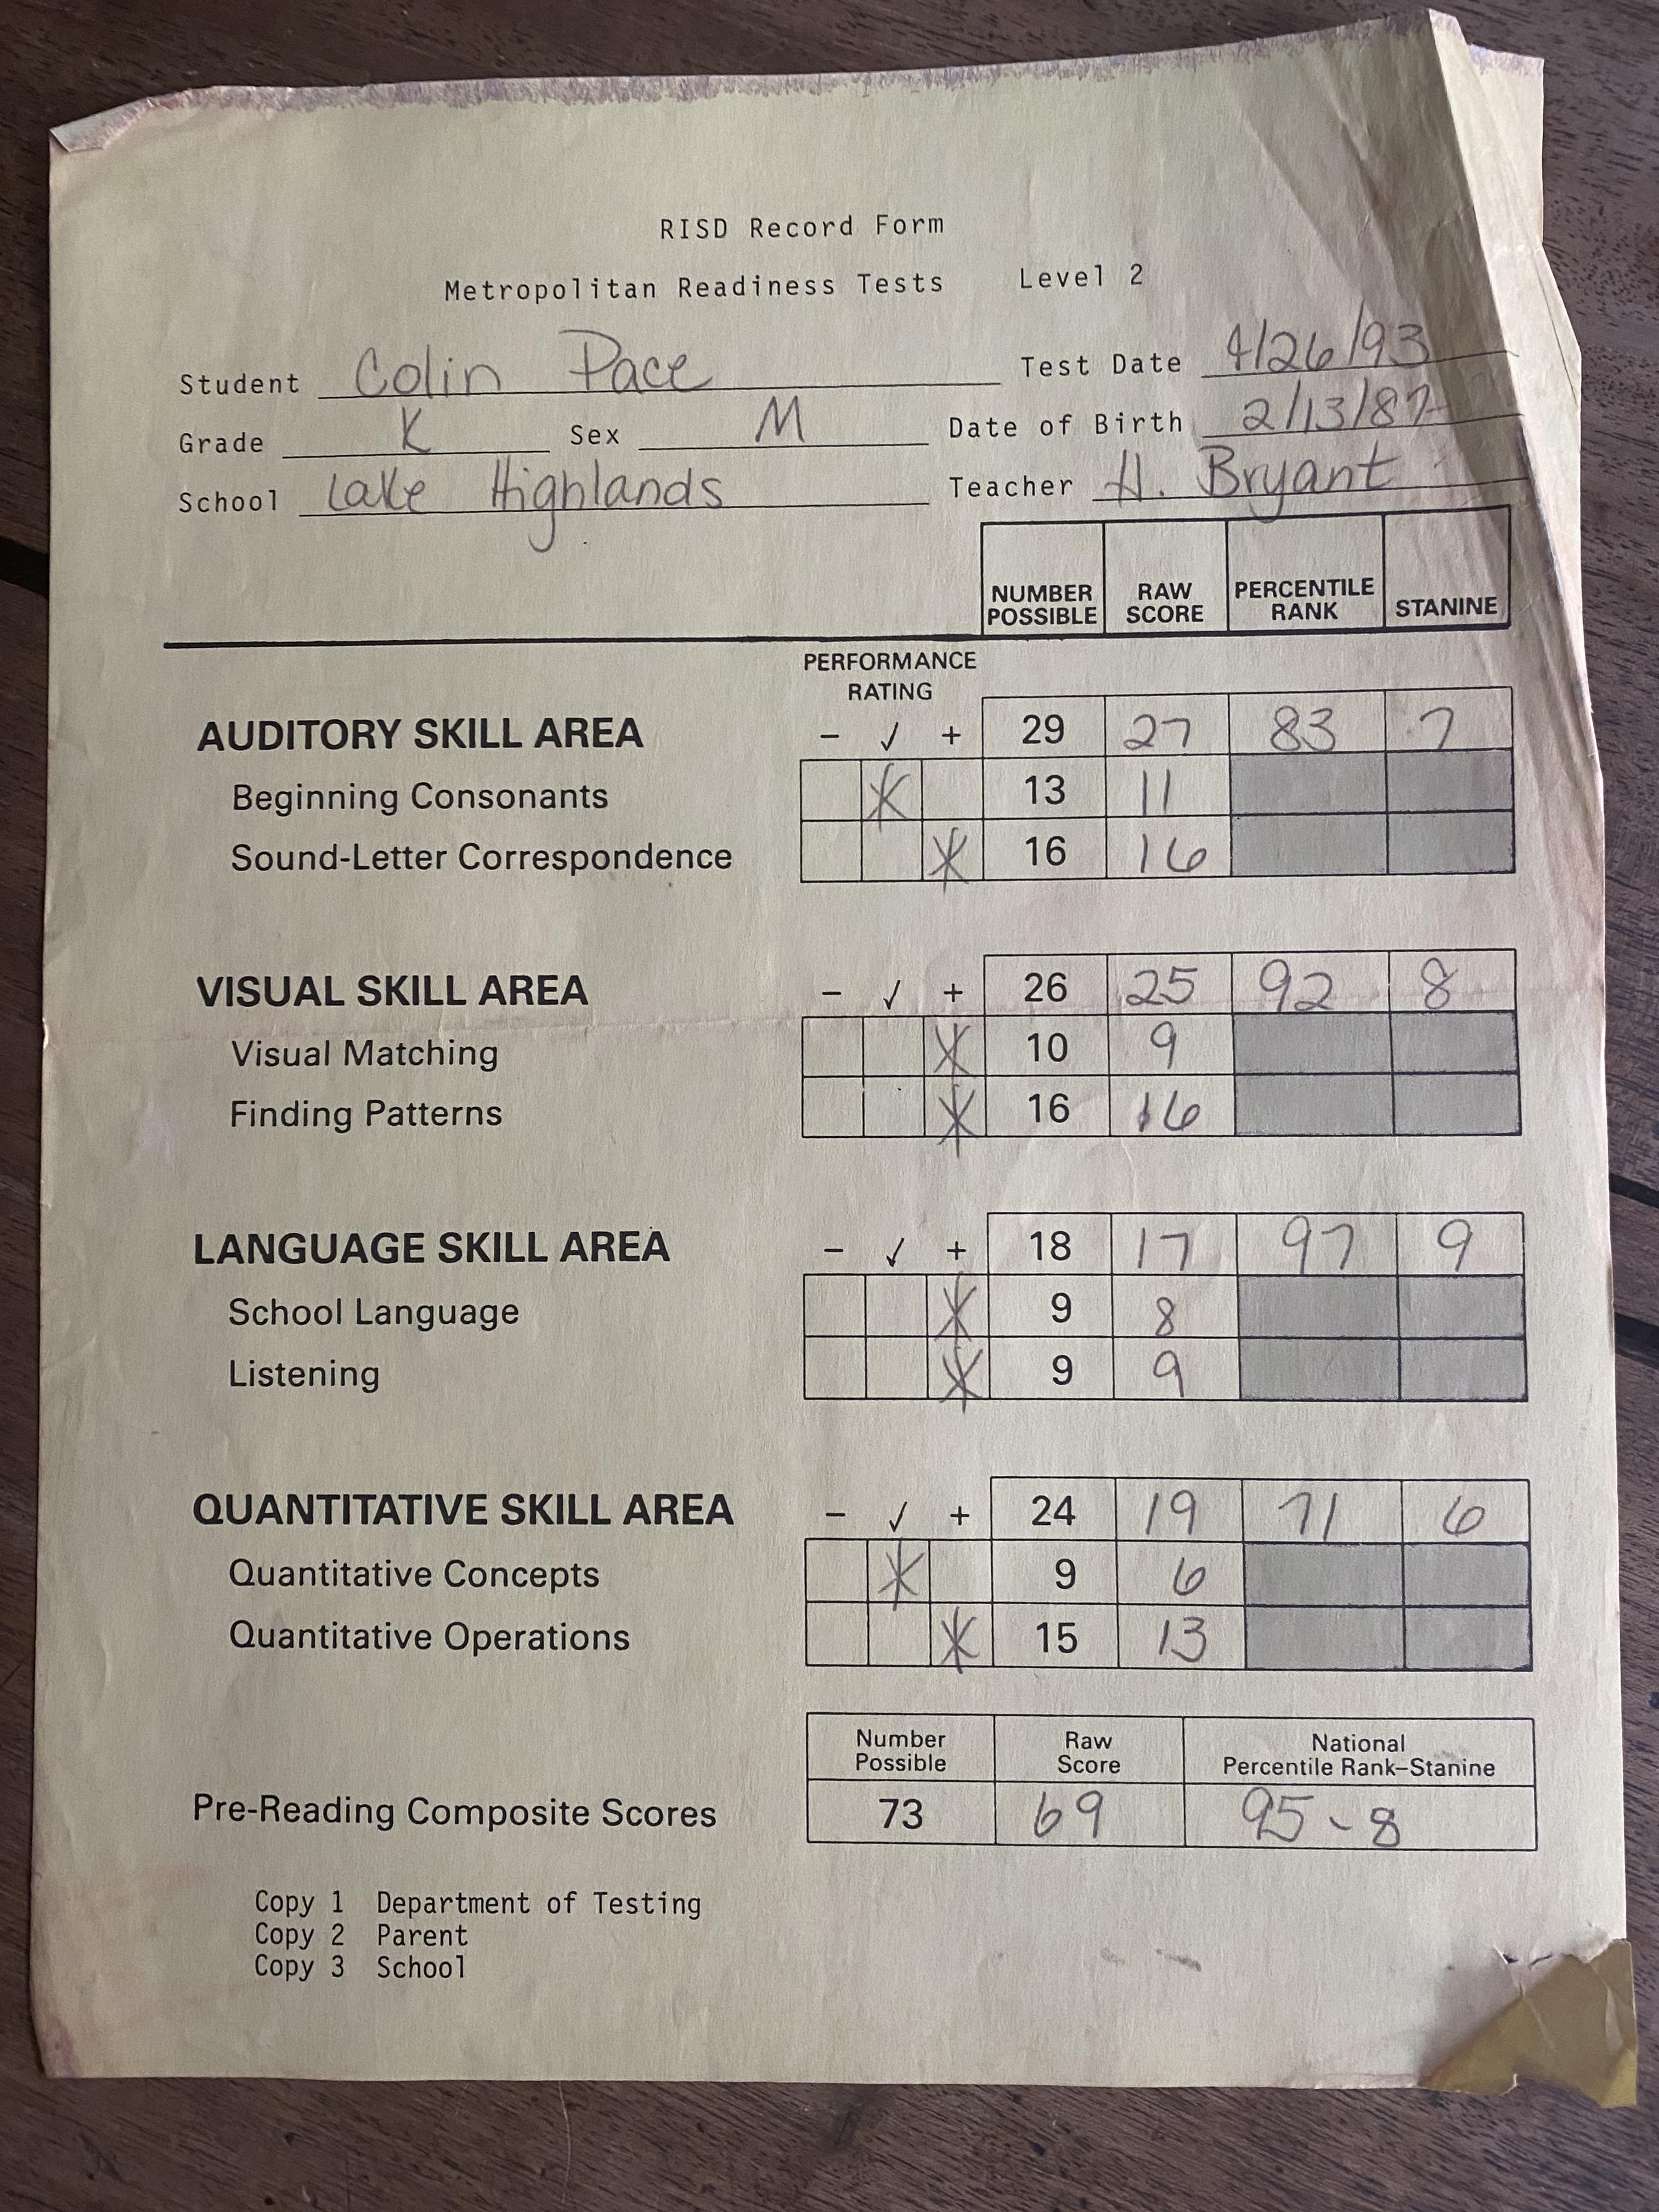 RISD Record Form
Metropolitan Readiness Tests Level 2
Student Colin Pace Test Date 4/26/93
Grade K Sex M Date of Birth 2/13/87
School Lake Highlands Teacher H. Bryant
NUMBER POSSIBLE RAW SCORE PERCENTILE RANK STANINE
PERFORMANCE RATING
AUDITORY SKILL AREA - ✓ + 29 27 83 7
Beginning Consonants 13 11
Sound-Letter Correspondence 16 16
VISUAL SKILL AREA - ✓ + 26 25 92 8
Visual Matching 10 9
Finding Patterns 16 16
LANGUAGE SKILL AREA - ✓ + 18 17 97 9
School Language 9 8
Listening 9 9
QUANTITATIVE SKILL AREA - ✓ + 24 19 71 6
Quantitative Concepts 9 6
Quantitative Operations 15 13
Number Possible Raw Score National Percentile Rank–Stanine
Pre-Reading Composite Scores 73 69 95-8
Copy 1 Department of Testing
Copy 2 Parent
Copy 3 School